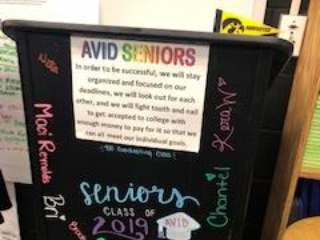 AVID SENIORS
In order to be successful, we will stay
organized and focused on our
deadlines, we will look out for each
other, and we will fight tooth and nail
to get accepted to college with
enough money to pay for it so that we
can all meet our individual goals.
Seniors
CLASS OF
2019
AVID
Maci Reynolds
Bri
Chantel
HAWKEYES